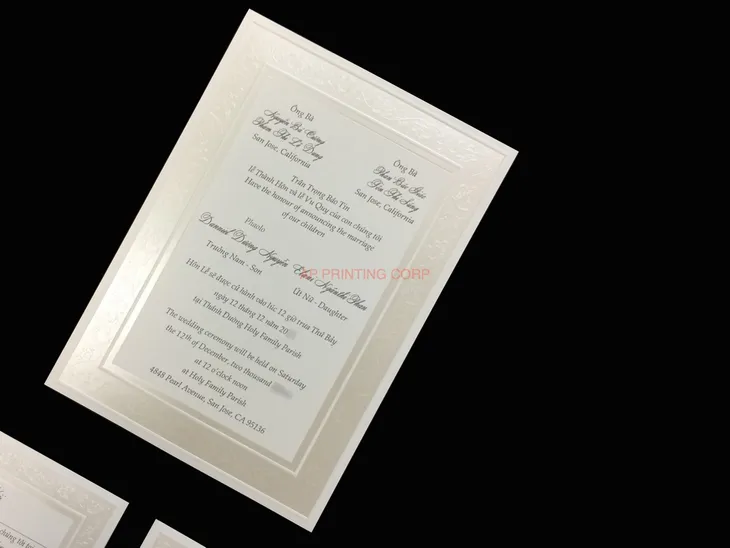 Ông Bà
Nguyễn Bá Cường
Phạm Thị Lệ Dung
San Jose, California
Ông Bà
Phan Bác
San Jose, California
Trân Trọng Báo Tin
lễ Thành Hôn và lễ Vu Quy của con chúng tôi
Have the honour of announcing the marriage
of our children
Phaolo
Dương Nguyễn
Phan
Trưởng Nam - Son
Út Nữ - Daughter
PRINTING CORP
Hôn Lễ sẽ được cử hành vào lúc 12 giờ trưa Thứ Bảy
ngày 12 tháng 12 năm 20
tại Thánh Đường Holy Family Parish
The wedding ceremony will be held on Saturday
the 12th of December, two thousand
at 12 o'clock noon
at Holy Family Parish
4848 Pearl Avenue, San Jose, CA 95136